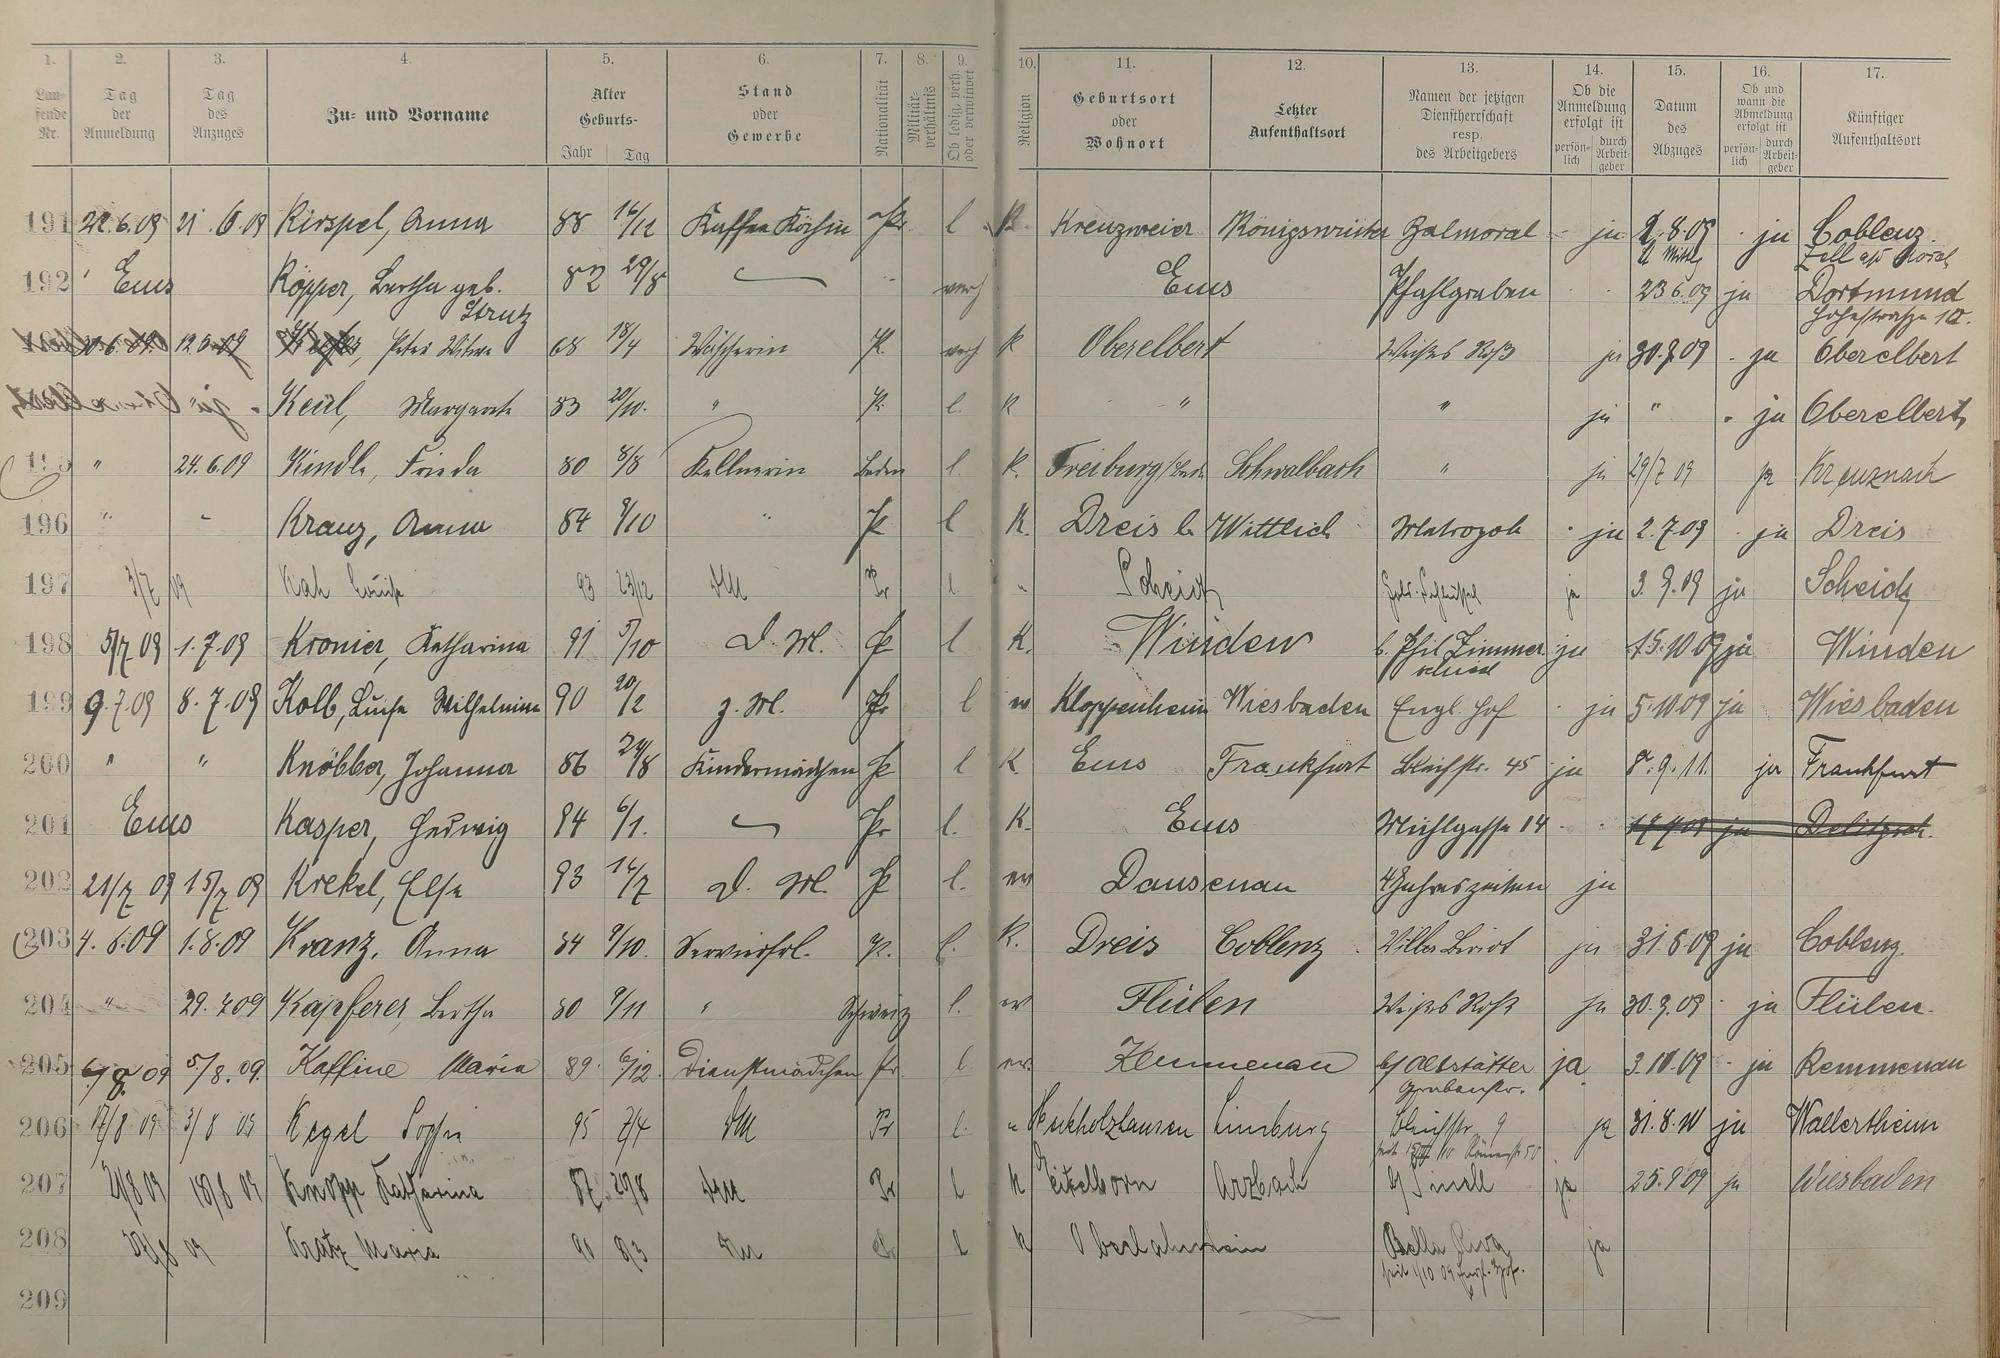 1. 2. 3. 4. 5. 6. 7. 8. 9. 10. 11. 12. 13. 14. 15. 16. 17.
Lau-fende Nr. Tag der Anmeldung Tag des Anzuges Zu- und Vorname Alter Geburts- Jahr Tag Stand oder Gewerbe Nationalität Militär-verhältnis Ob ledig, verh. oder verwitwet Religion Geburtsort oder Wohnort Letzter Aufenthaltsort Namen der jetzigen Dienstherrschaft resp. des Arbeitgebers Ob die Anmeldung erfolgt ist persön-lich durch Arbeit-geber Datum des Abzuges Ob und wann die Abmeldung erfolgt ist persön-lich durch Arbeit-geber Künftiger Aufenthaltsort
191 22.6.09 21.6.09 Kirspel, Anna 88 16/12 Kaffee Köchin Pr. l K. Kreuzweier Königswinter Balmoral ja 2.8.09 ja Coblenz.
192 Ems Köpper, Bertha geb. 82 29/8 verh Ems Pfahlgraben 23 6.09 ja Dortmund
Strutz Hohestrasse
12.6.09 Peter Witwe 68 18/4 Wäscherin Pr. verh K Oberelbert Weißes Roß ja 30.9.09 ja Oberelbert
Keul, Margarete 83 20/10. " Pr. l. K " " ja " ja Oberelbert
195 " 24.6.09 Kindle, Frieda 80 8/8 Kellnerin Baden l. K. Freiburg/Baden Schwalbach " ja 29/7 09 ja Kreuznach
196 " Kranz, Anna 84 9/10 " Pr l K. Dreis b. Wittlich Metropole ja 2.7.09 ja Dreis
197 3/7 09 Kah Louise 93 23/12 DM Pr l. " Scheid ja 3.9.09 ja Scheid
198 5/7 09 1.7.09 Kronier, Katharina 91 5/10 D. M. Pr l K. Winden b. Phil Zimmer ja 15.10 09 ja Winden
schied
199 9.7.09 8.7.09 Kolb, Luise Wilhelmine 90 20/2 z. M. Pr l ev Kloppenheim Wiesbaden Engl. Hof ja 5.10 09 ja Wiesbaden
200 " " Knöbber, Johanna 86 24/8 Kindermädchen Pr l K Ems Frankfurt Bleichstr. 45 ja 8.9.11. ja Frankfurt
201 Ems Kasper, Hedwig 94 6/1. Pr l. K. Ems Mühlgasse 14 ja Delitzsch.
202 21/7 09 15/7 09 Krekel, Else 93 16/7 D. M. Pr l. ev Dausenau 4 Jahreszeiten ja
203 4.8.09 1.8.09 Kranz, Anna 84 9/10. Servierfrl. Pr. l. K. Dreis Coblenz Villa Beriot ja 31.8.09 ja Coblenz.
204 " 29.7.09 Kapferer, Bertha 80 9/11 " Schweiz l. ev Flülen Weißes Roß ja 30.9.09 ja Flülen.
205 6/8 09 5/8.09. Kaffine Maria 89 6/12. Dienstmädchen Pr. l. ev. Kemmenau b/ Altstätter ja 3.10.09 ja Kemmenau
Grabenstr.
206 17/8 09 3/8 09 Kegel Sophie 95 7/4 DM Pr l. " Limburg Bleichstr. 9 ja 31.8.10 ja Wallertheim
207 21/8 09 18/8 09 Knopp Katharina 87 29/8 DM Pr l K Eitelborn Arzbach ja 25.9 09 ja Wiesbaden
208 Kratz Maria 90 8/3 DM Pr l K Oberlahnstein Bella Riva ja
seit 1/10 09 Engl. Hof.
209